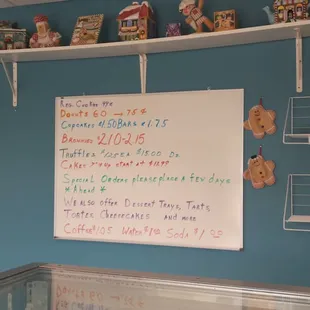 Reg. Cookie
Donuts 60 → 75 ¢
Cupcakes $1.50 Bars $ 1.75
Brownies $2.10-2.15
Truffles $15.00 Dz
Cakes 7" round start at
Special Orders please place a few days
* Ahead *
We also offer Dessert Trays, Tarts,
Tortes Cheesecakes and more
Coffee $1.05 Water $1.00 Soda